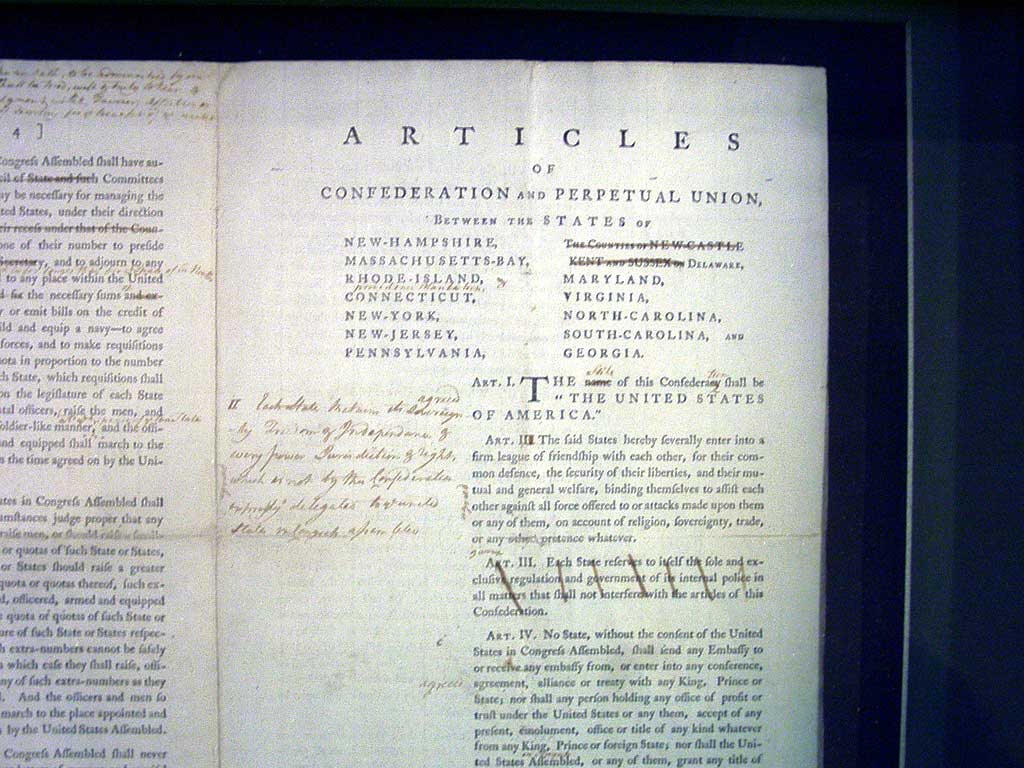 4 ]
Congreſs Aſſembled ſhall have au-
State and ſuch Committees
be neceſſary for managing the
States, under their direction
receſs under that of the Coun-
one of their number to preſide
Secretary, and to adjourn to any
to any place within the United
fix the neceſſary ſums and ex-
or emit bills on the credit of
and equip a navy—to agree
forces, and to make requiſitions
quota in proportion to the number
State, which requiſitions ſhall
on the legiſlature of each State
officers, raiſe the men, and
ſoldier-like manner, and the offi-
and equipped ſhall march to the
the time agreed on by the Uni-
in Congreſs Aſſembled ſhall
circumſtances judge proper that any
raiſe men, or ſhould raiſe a
or quotas of ſuch State or States,
or States ſhould raiſe a greater
quota or quotas thereof, ſuch ex-
officered, armed and equipped
quota or quotas of ſuch State or
of ſuch State or States reſpec-
extra-numbers cannot be ſafely
which caſe they ſhall raiſe, offi-
of ſuch extra-numbers as they
And the officers and men ſo
march to the place appointed and
by the United States Aſſembled.
Congreſs Aſſembled ſhall never
ARTICLES
OF
CONFEDERATION AND PERPETUAL UNION,
BETWEEN THE STATES OF
NEW-HAMPSHIRE,
MASSACHUSETTS-BAY,
RHODE-ISLAND, &
providence plantations
CONNECTICUT,
NEW-YORK,
NEW-JERSEY,
PENNSYLVANIA,
THE COUNTIES OF NEW-CASTLE
KENT AND SUSSEX ON DELAWARE,
MARYLAND,
VIRGINIA,
NORTH-CAROLINA,
SOUTH-CAROLINA, AND
GEORGIA.
ART. I. THE name stile of this Confederacy tion ſhall be
"THE UNITED STATES
OF AMERICA."
agreed
II Each State retains its Sovereign
-ty Freedom & Independance &
every power Jurisdiction & right,
which is not by this Confederation
expressly delegated to the united
States in Congress assembled
ART. III. The ſaid States hereby ſeverally enter into a
firm league of friendſhip with each other, for their com-
mon defence, the ſecurity of their liberties, and their mu-
tual and general welfare, binding themſelves to aſſiſt each
other againſt all force offered to or attacks made upon them
or any of them, on account of religion, ſovereignty, trade,
or any other pretence whatever.
ART. III. Each State reſerves to itſelf the ſole and ex-
cluſive regulation and government of its internal police in
all matters that ſhall not interfere with the articles of this
Confederation.
agreed
ART. IV. No State, without the conſent of the United
States in Congreſs Aſſembled, ſhall ſend any Embaſſy to
or receive any embaſſy from, or enter into any conference,
agreement, alliance or treaty with any King, Prince or
State; nor ſhall any perſon holding any office of profit or
truſt under the United States or any them, accept of any
preſent, emolument, office or title of any kind whatever
from any King, Prince or foreign State; nor ſhall the Uni-
ted States Aſſembled, or any of them, grant any title of